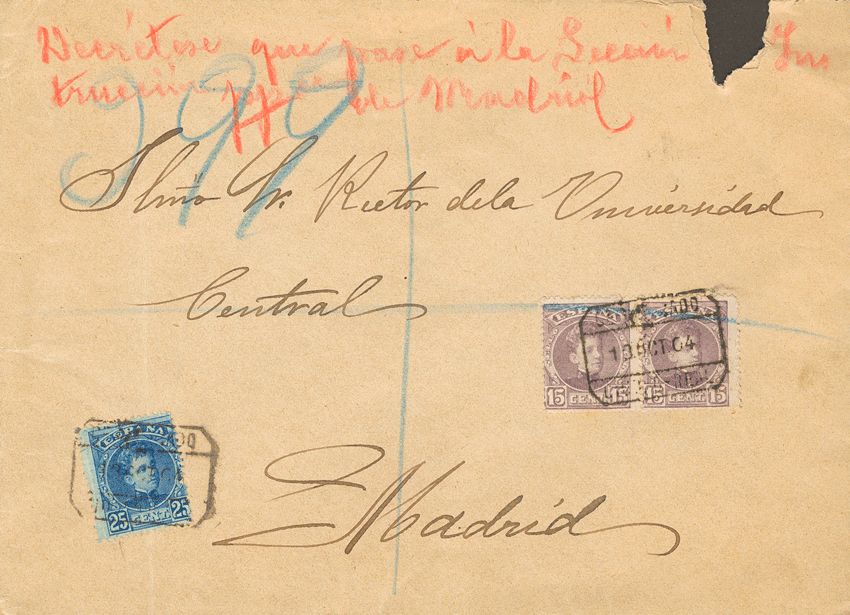 Decrétese que pase à la Sección Ins
trucción de Madrid
999
Ilmo Sr. Rector de la Universidad
Central
ESPAÑA
15 CENT. 15
ESPAÑA
15 CENT. 15
10 OCT 04
ESPAÑA
25 CENT. 25
Madrid